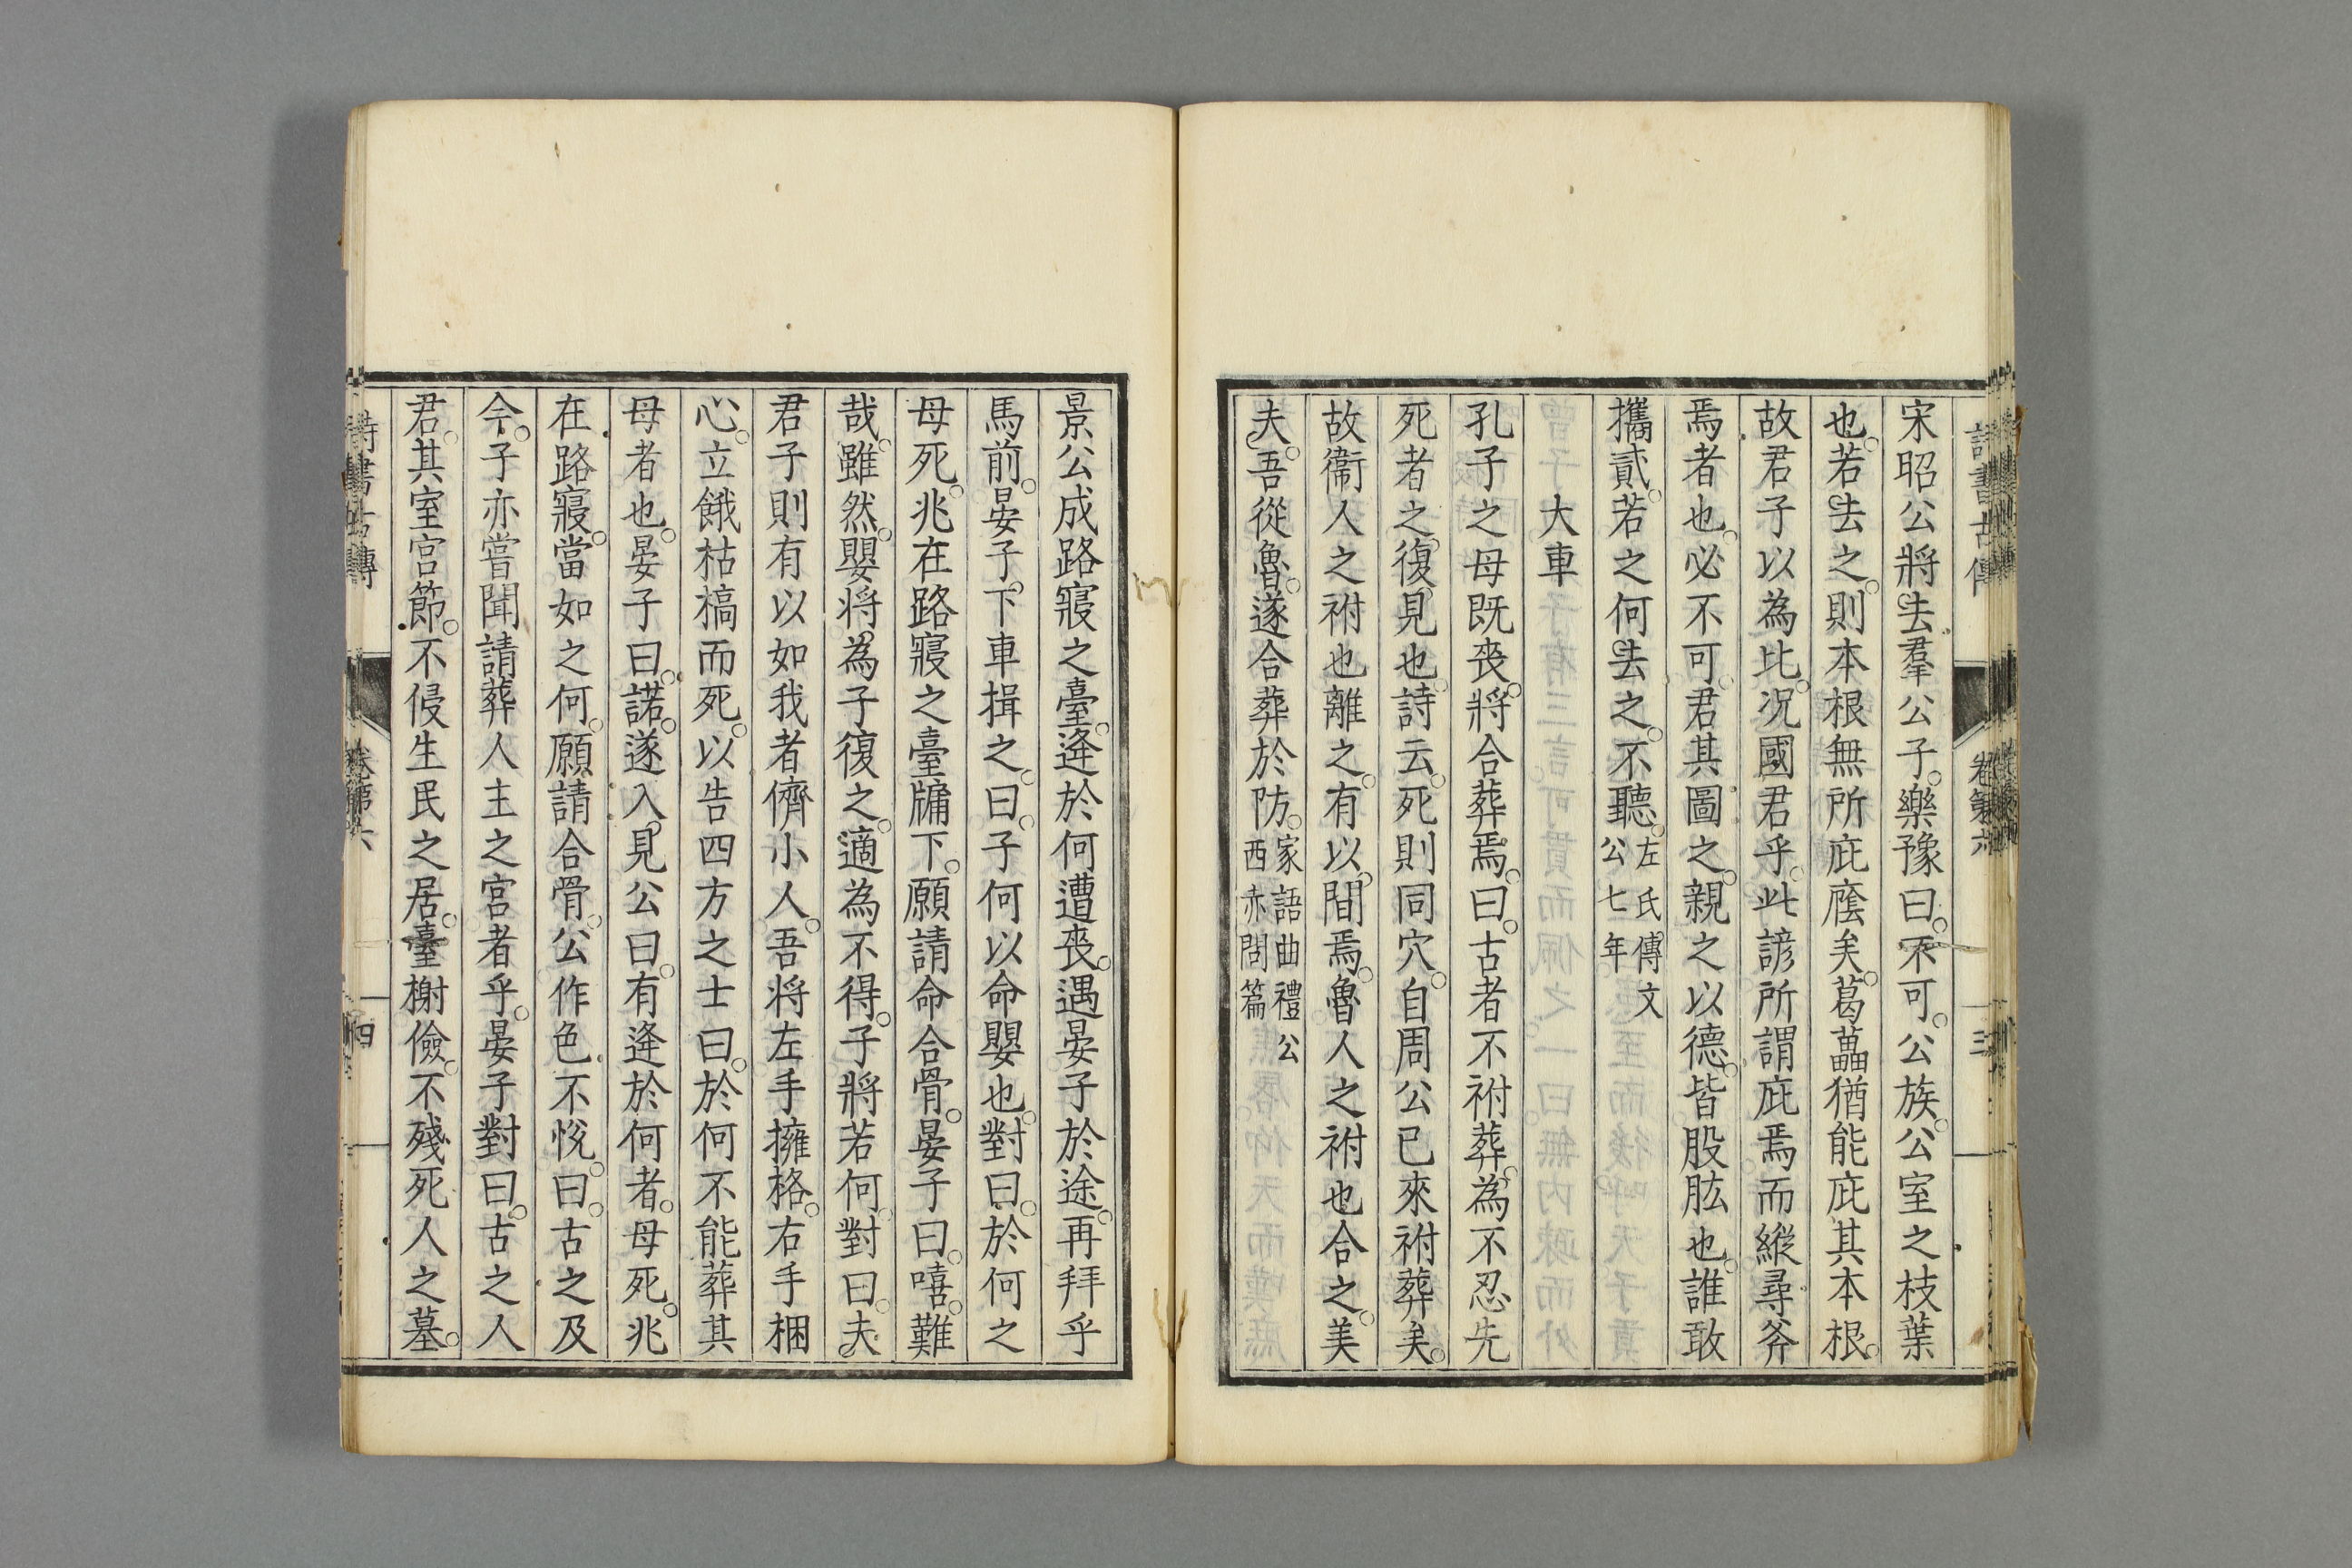 宋昭公將去羣公子。樂豫曰。不可。公族。公室之枝葉
也。若去之。則本根無所庇廕矣。葛藟猶能庇其本根。
故君子以為比。况國君乎。此諺所謂庇焉而縱尋斧
焉者也。必不可。君其圖之。親之以德。皆股肱也。誰敢
攜貳。若之何去之。不聽。左氏傳文公七年
大車
孔子之母既丧。將合葬焉。曰。古者不祔葬。為不忍先
死者之復見也。詩云。死則同穴。自周公已來祔葬矣。
故衞人之祔也離之。有以間焉。魯人之祔也合之。美
夫。吾從魯。遂合葬於防。家語曲禮公西赤問篇
詩書古傳 卷第六 三
景公成路寢之臺。逄於何遭丧。遇晏子於途。再拜乎
馬前。晏子下車揖之。曰。子何以命嬰也。對曰。於何之
母死。兆在路寢之臺牗下。願請命合骨。晏子曰。嘻。難
哉。雖然。嬰将為子復之。適為不得。子將若何。對曰。夫
君子則有以如我者儕小人。吾将左手擁格。右手梱
心。立餓枯槁而死。以告四方之士曰。於何不能葬其
母者也。晏子曰。諾。遂入見公曰。有逄於何者。母死。兆
在路寢。當如之何。願請合骨。公作色不悅。曰。古之及
今。子亦嘗聞請葬人主之宮者乎。晏子對曰。古之人
君。其室宮節。不侵生民之居。臺榭儉。不殘死人之墓。
詩書古傳 卷第六 四